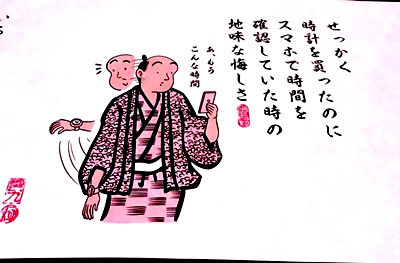 せっかく
時計を買ったのに
スマホで時間を
確認していた時の
地味な悔しさ
あ、もう
こんな時間